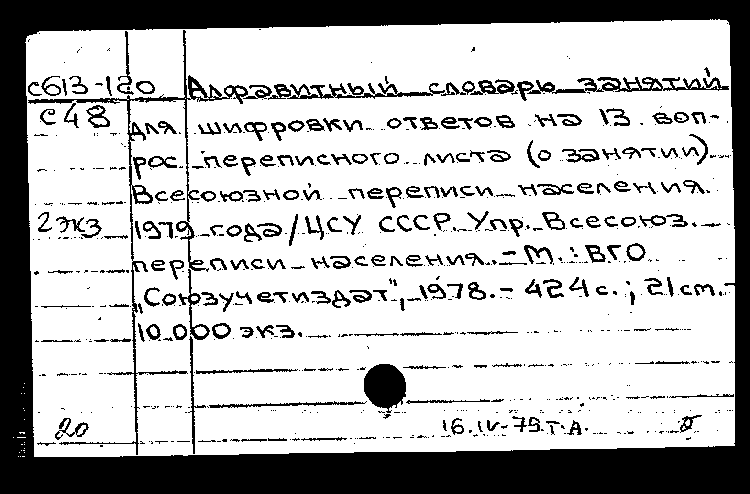 с613-120 Алфавитный словарь занятий
С48 для шифровки ответов на 13 воп-
рос переписного листа (о занятии)
Всесоюзной переписи населения
2 экз 1979 года/ЦСУ СССР. Упр. Всесоюз.
переписи населения.-М.: ВГО
„Союзучетиздат", 1978.- 424 с.; 21 cm.-
10.000 экз.
20 16.IV-79 Т.А.